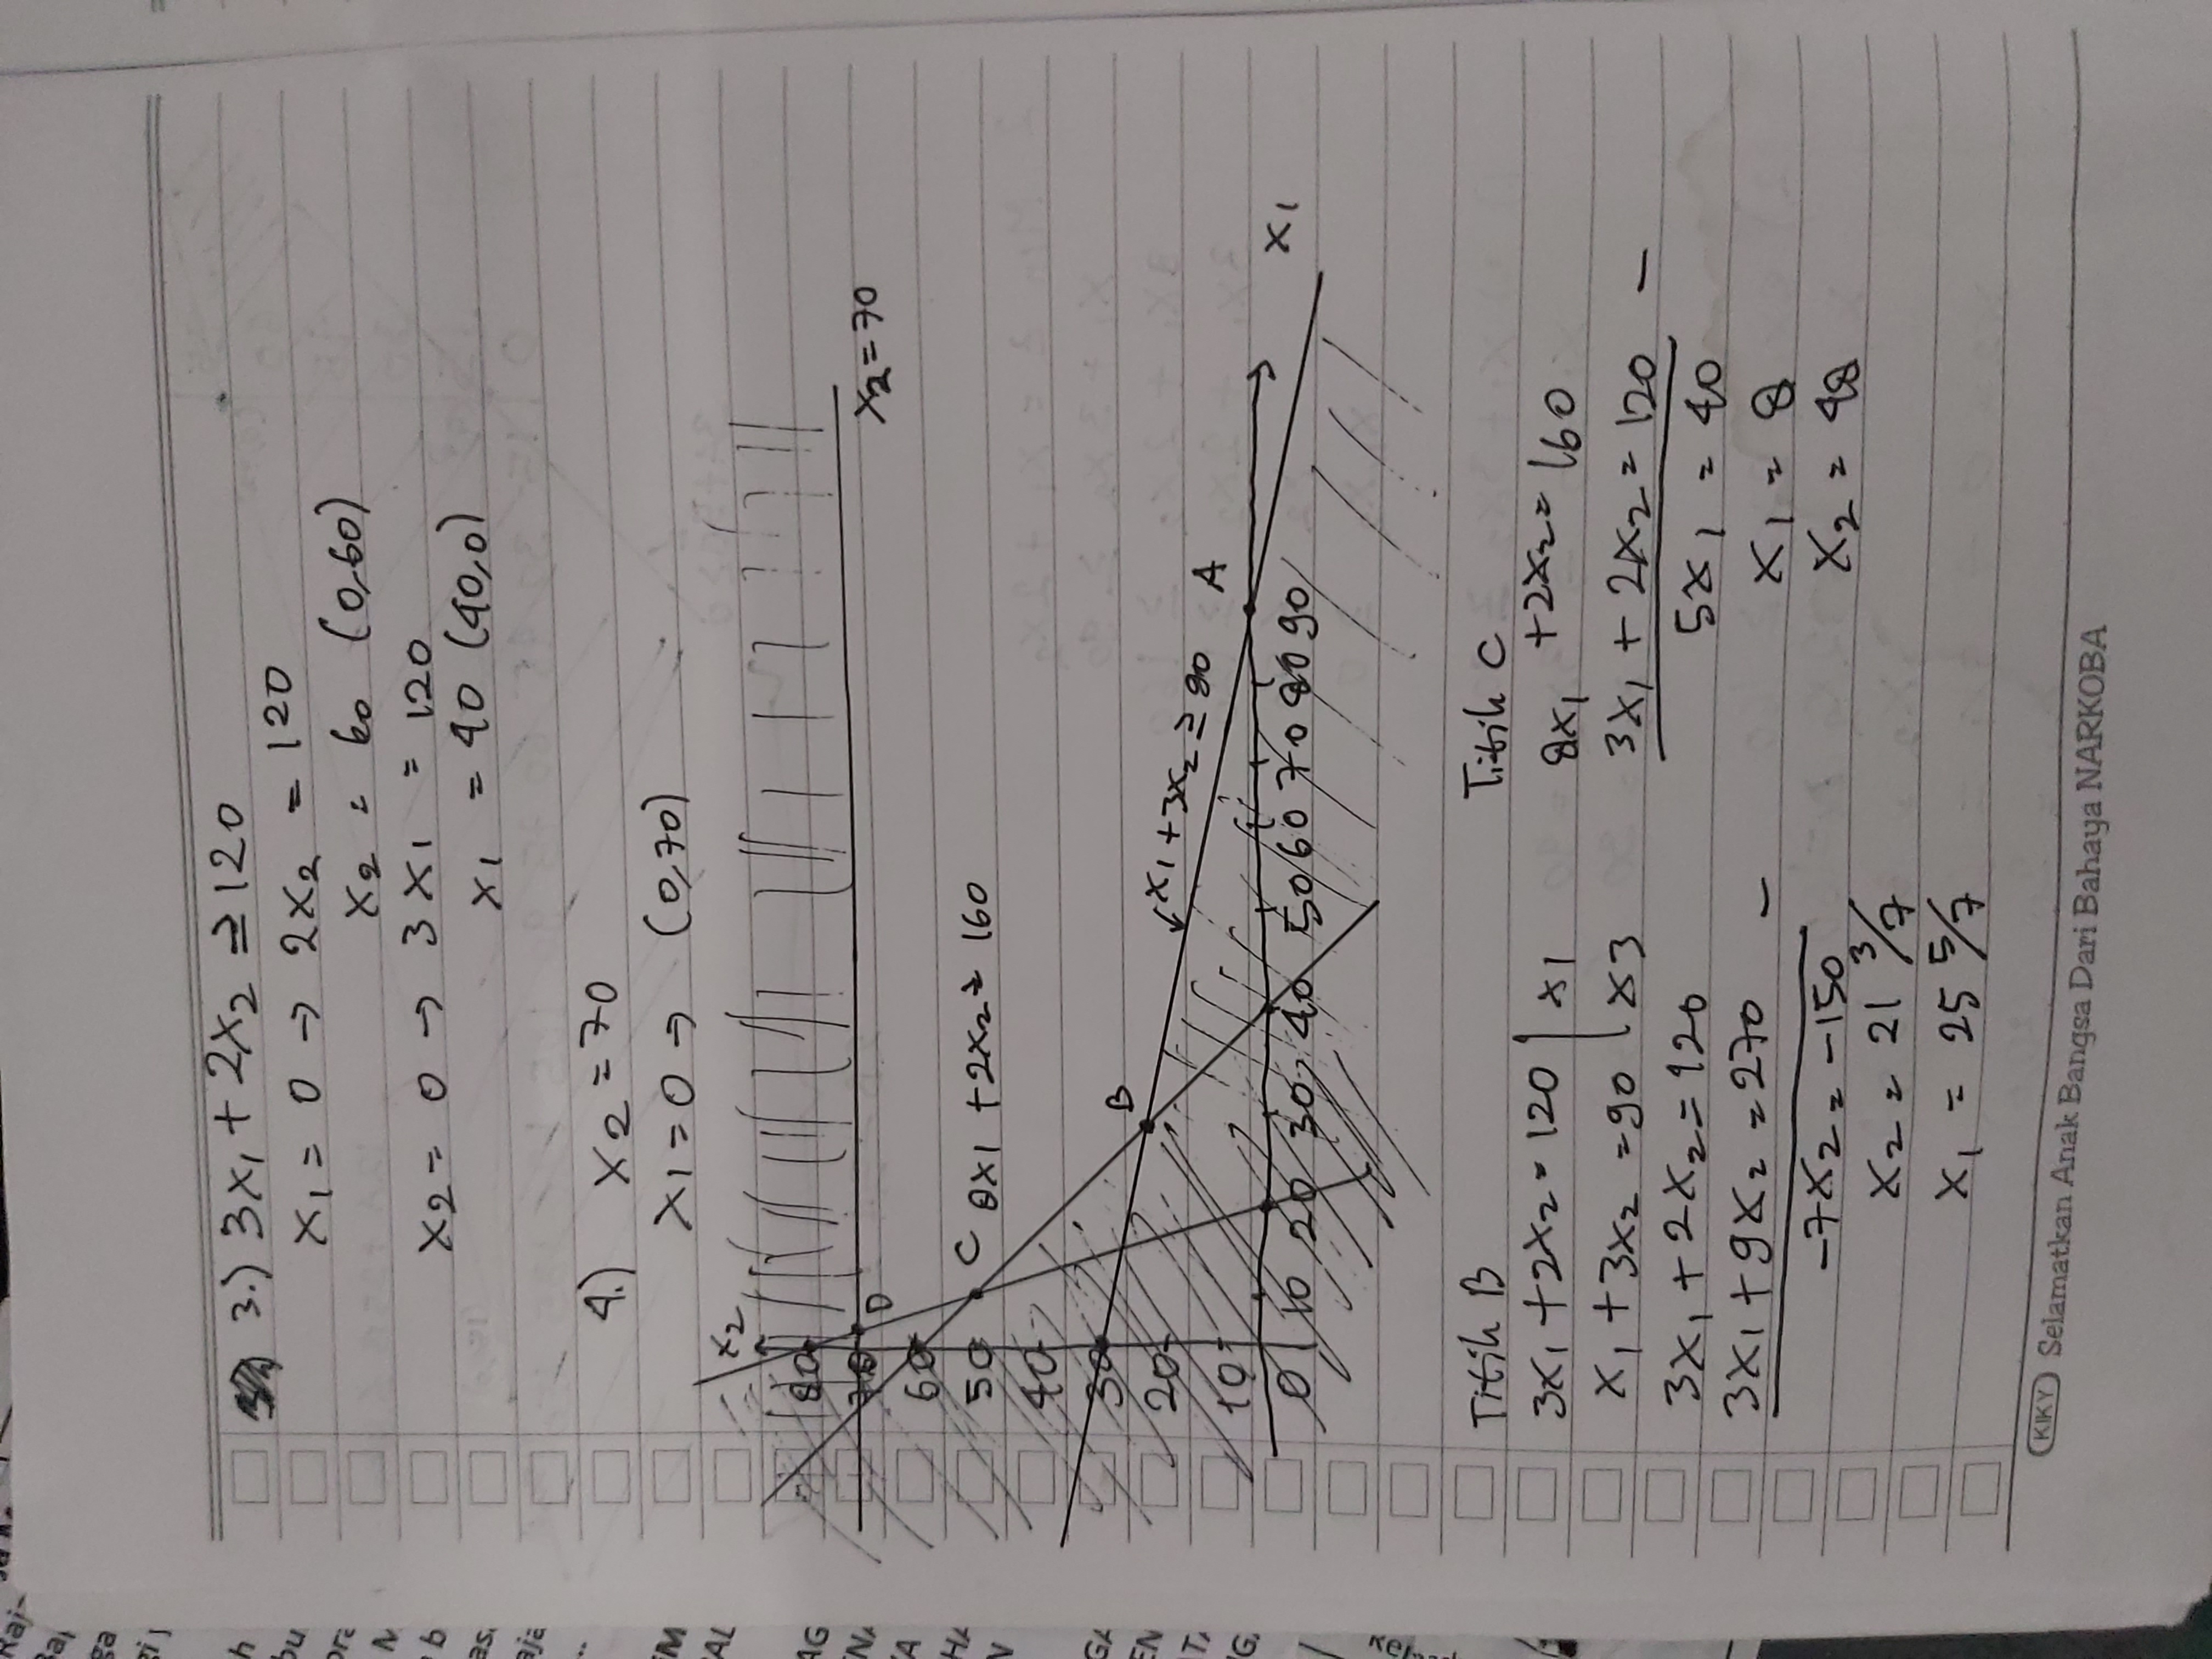 3.) 3x₁ + 2x₂ ≥ 120
x₁ = 0 → 2x₂ = 120
x₂ = 60 (0,60)
x₂ = 0 → 3x₁ = 120
x₁ = 40 (40,0)
4.) x₂ = 70
x₁ = 0 → (0,70)
x₂
80
70
D
x₂ = 70
60
50
C 8x₁ + 2x₂ ≥ 160
40
30
B
20
x₁ + 3x₂ ≥ 90
A
10
0 10 20 30 40 50 60 70 80 90
x₁
Titik B
3x₁ + 2x₂ = 120 | x1
x₁ + 3x₂ = 90 | x3
3x₁ + 2x₂ = 120
3x₁ + 9x₂ = 270 -
-7x₂ = -150
x₂ = 21 3/7
x₁ = 25 5/7
Titik C
8x₁ + 2x₂ = 160
3x₁ + 2x₂ = 120 -
5x₁ = 40
x₁ = 8
x₂ = 48
KIKY Selamatkan Anak Bangsa Dari Bahaya NARKOBA